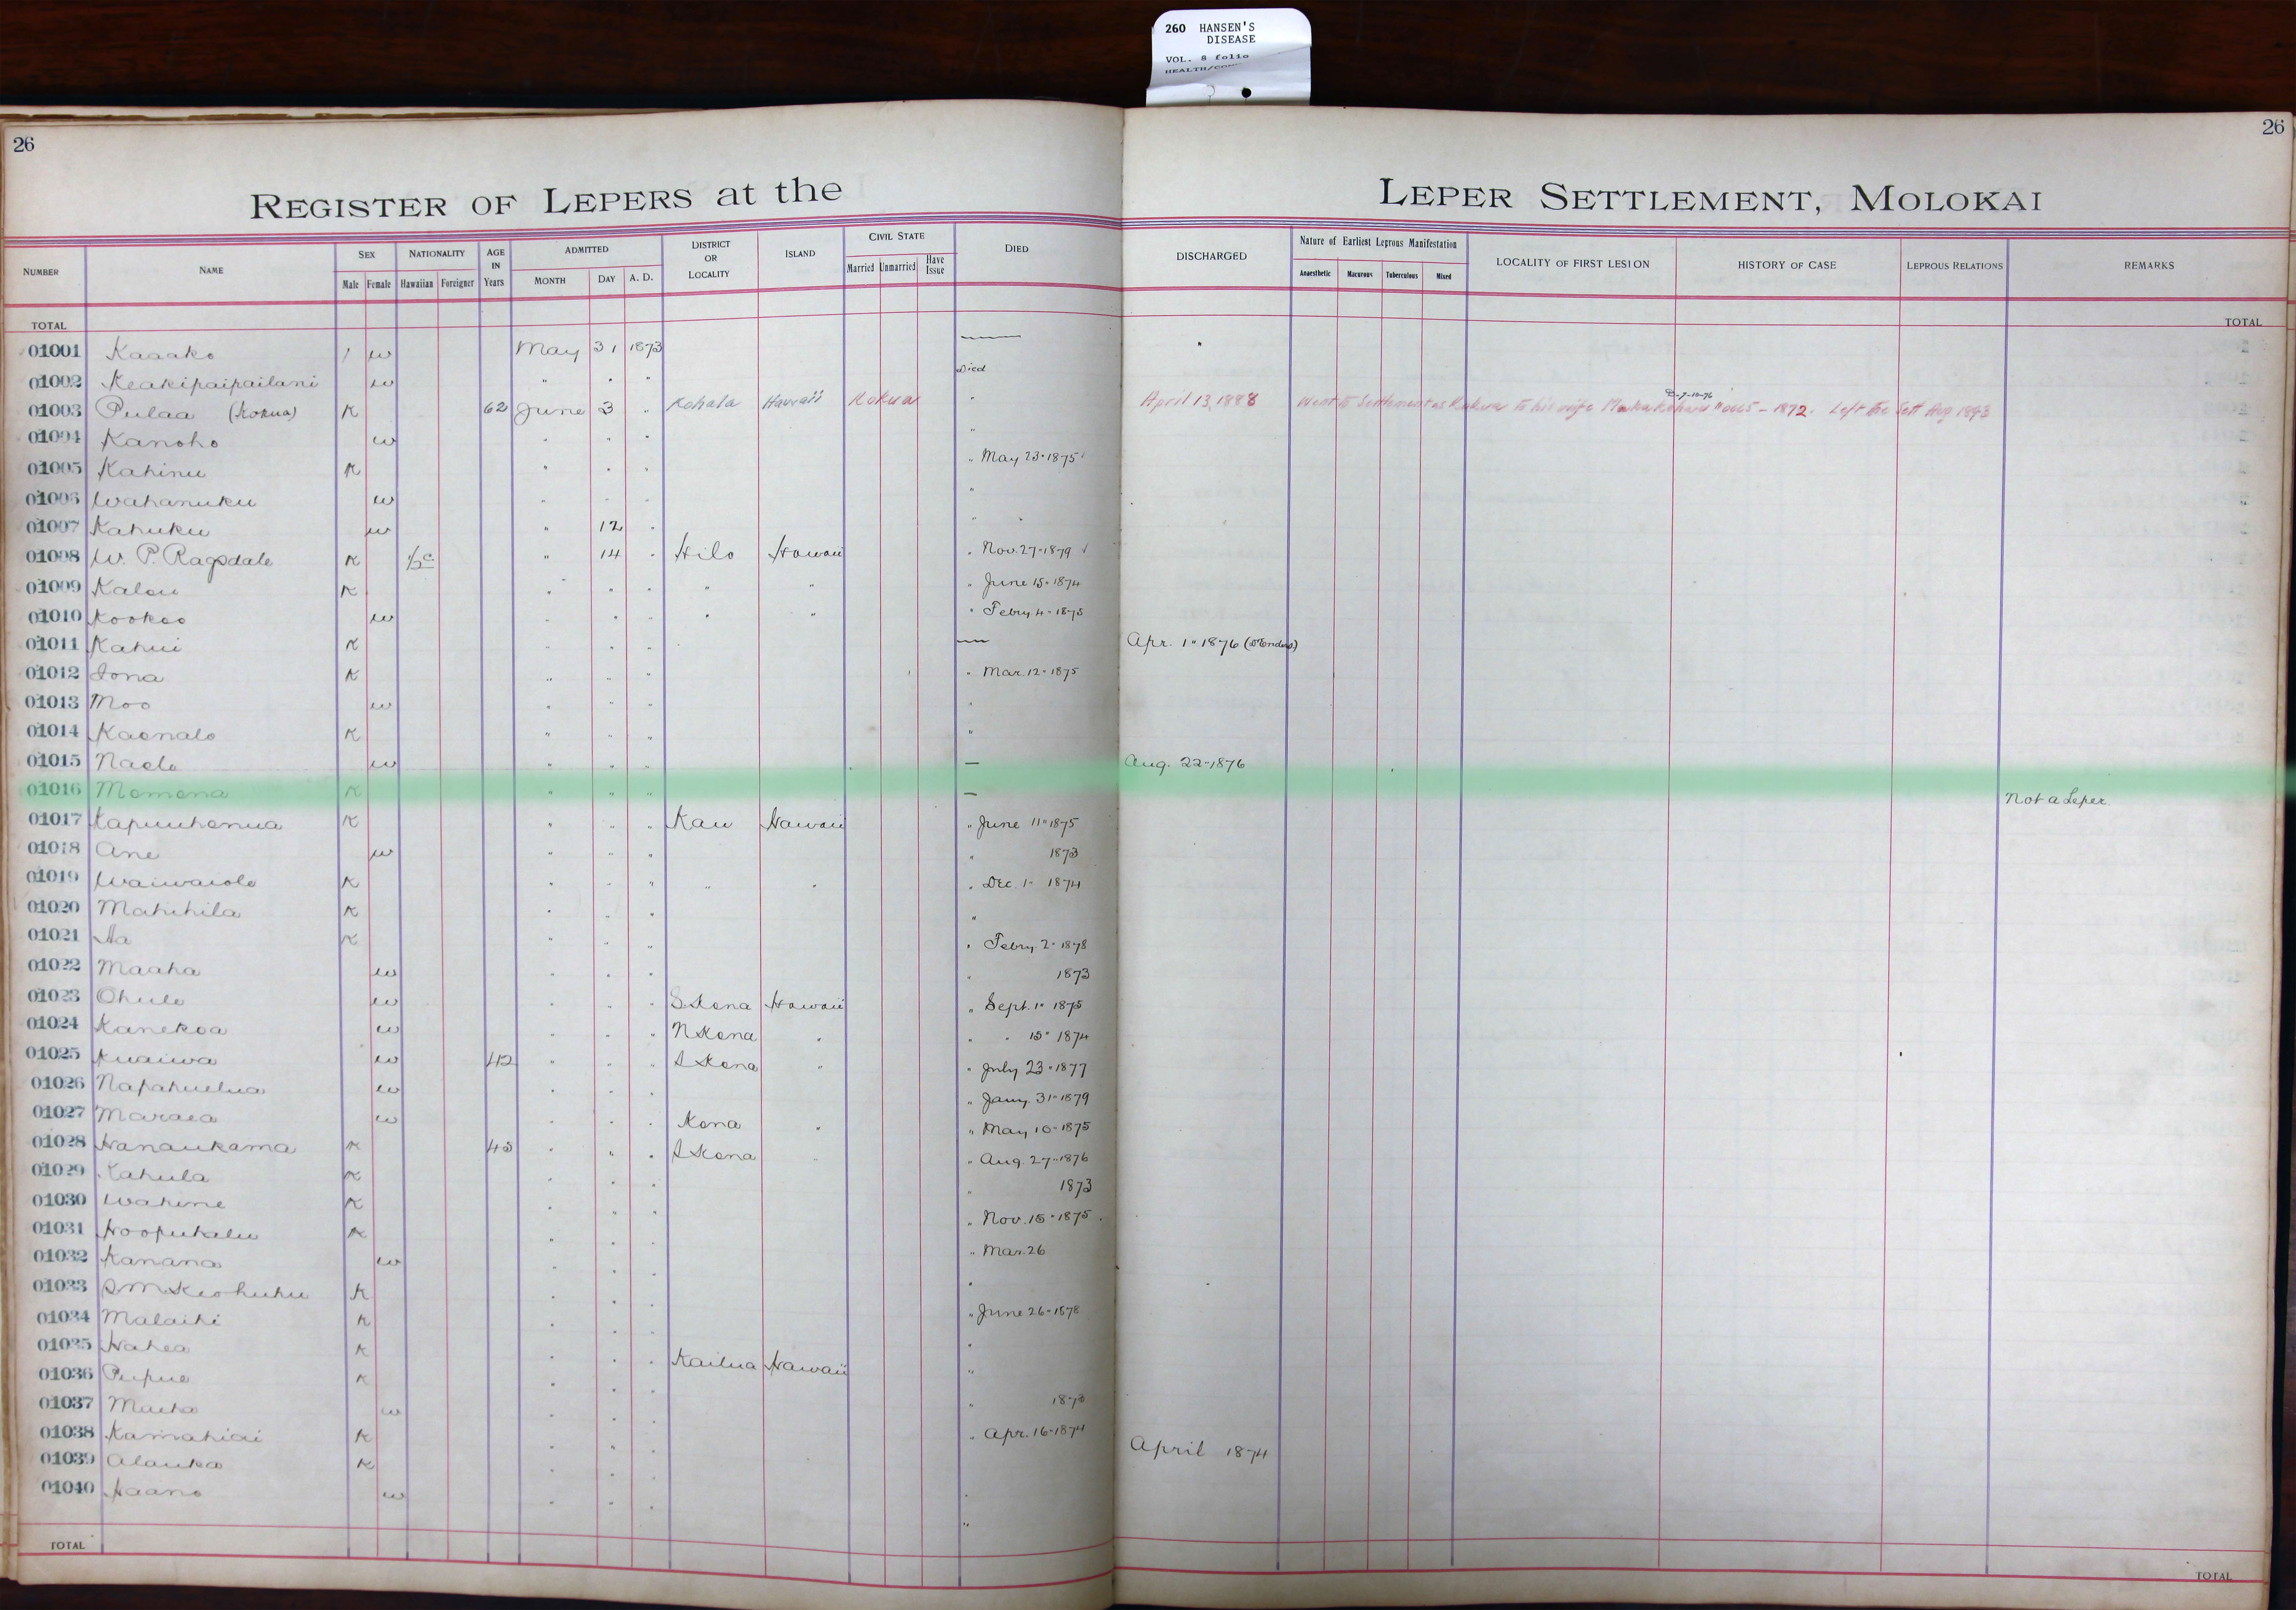 260 HANSEN'S
DISEASE
VOL. 8 folio
26
26
REGISTER OF LEPERS at the LEPER SETTLEMENT, MOLOKAI
NUMBER NAME SEX NATIONALITY AGE IN Years ADMITTED DISTRICT OR LOCALITY ISLAND CIVIL STATE DIED DISCHARGED Nature of Earliest Leprous Manifestation LOCALITY OF FIRST LESION HISTORY OF CASE LEPROUS RELATIONS REMARKS
Male Female Hawaiian Foreigner MONTH DAY A. D. Married Unmarried Have Issue Anaesthetic Macurous Tuberculous Mixed
TOTAL TOTAL
01001 Kaaako / w May 31 1873 — "
01002 Keakipaipailani w " " " Died
01003 Pulaa (Kokua) K 62 June 3 " Kohala Hawaii Kokua " April 13, 1888 Went to Settlement as Kokua to his wife 1872. Left the Sett Aug 1893
01004 Kanoho w " " " "
01005 Kahinu K " " " " May 23 " 1875
01006 Wahanuku w " " " "
01007 Kahuku w " 12 " "
01008 W. P. Ragsdale K 1/2 c " 14 " Hilo Hawaii " Nov. 27 " 1879
01009 Kalou K " " " " " " June 15 " 1874
01010 Kookoo w " " " " " " Febry 4 - 1875
01011 Kahui K " " " — Apr. 1 " 1876
01012 Iona K " " " " Mar. 12 " 1875
01013 Moo w " " " "
01014 Kaonalo K " " " "
01015 Naele w " " " — Aug. 22 - 1876
01016 Momona K " " " — Not a Leper
01017 Kapuuhonua K " " " Kau Hawaii " June 11 " 1875
01018 Ane w " " " " 1873
01019 Waiwaiole K " " " " " " Dec. 1 " 1874
01020 Mahihila K " " " "
01021 Aa K " " " " Febry. 2 " 1878
01022 Maaha w " " " " 1873
01023 Ohule w " " " S. Kona Hawaii " Sept. 1 " 1875
01024 Kanekoa w " " " N Kona " " " 15 " 1874
01025 Kuaiwa w 42 " " " S Kona " " July 23 " 1877
01026 Napahuelua w " " " " Jany. 31 " 1879
01027 Maraea w " " " Kona " " May 10 " 1875
01028 Hanaukama K 45 " " " S Kona " " Aug. 27 " 1876
01029 Kahula K " " " " 1873
01030 Wahine K " " " " Nov. 15 " 1875
01031 Hoopukalu K " " " " Mar. 26
01032 Kanana w " " " "
01033 S M Keohuhu K " " " " June 26 - 1878
01034 Malaihi K " " " "
01035 Hahea K " " " Kailua Hawaii "
01036 Pupue K " " " " 1873
01037 Maeha w " " " " Apr. 16 - 1874
01038 Kamahiai K " " " April 1874
01039 Alauka K " " " "
01040 Haano w " " " "
TOTAL TOTAL